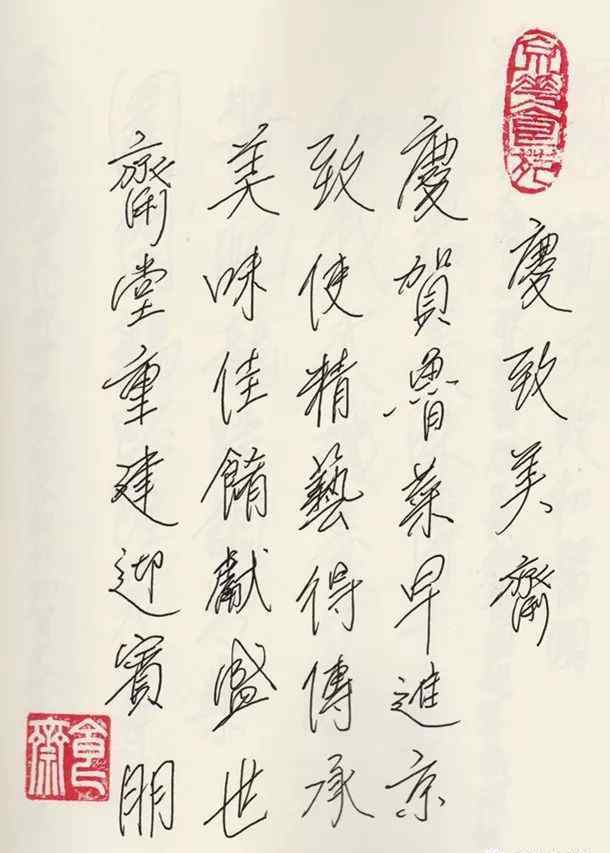 慶致美齋
慶賀魯菜早進京
致使精藝得傳承
美味佳餚獻盛世
齋堂重建迎賓朋